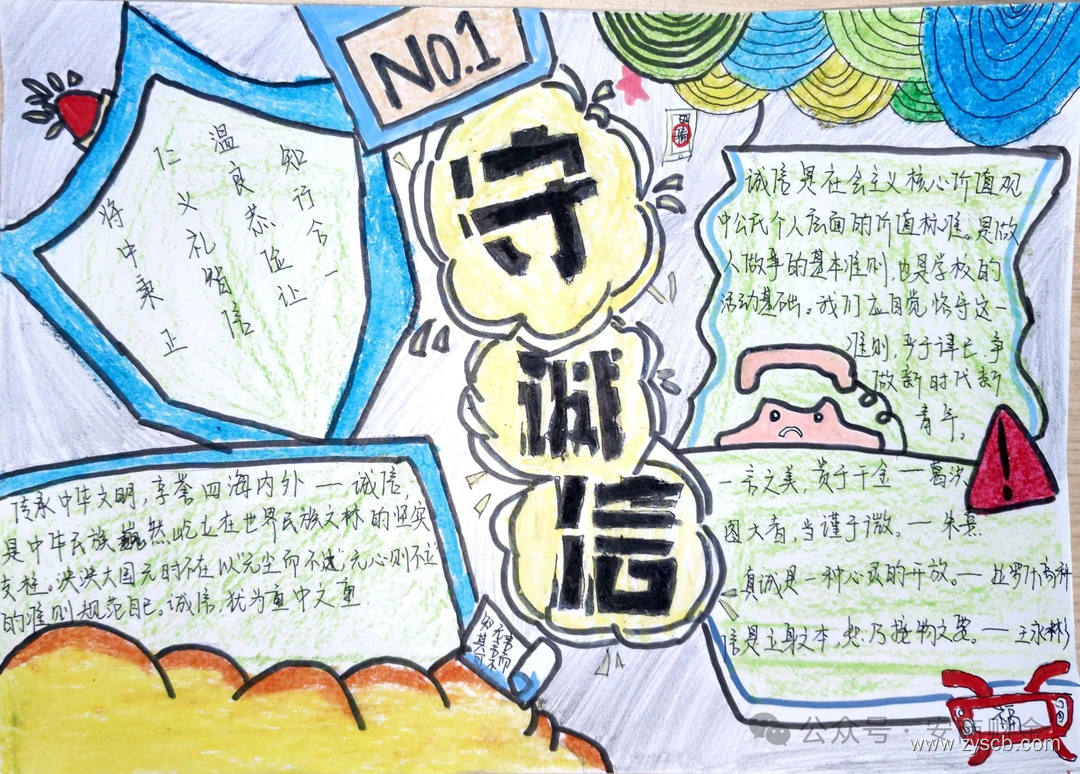 NO.1
守
诚
信
知行合一
温良恭俭让
仁义礼智信
将中秉正
诚信是社会主义核心价值观
中公民个人层面的价值标准。是做
人做事的基本准则,也是学校的
活动基础。我们应自觉恪守这一
准则,严于律己,争
做新时代新
青年。
传承中华文明,享誉四海内外——诚信,
是中华民族巍然屹立在世界民族之林的坚实
支柱。泱泱大国无时不在以
的准则规范自己。诚信,犹为重中之重.
一言之美,贵于千金——葛洪
图大者,当谨于微。——朱熹
真诚是一种心灵的开放。——拉罗什富科
信是立身之本,恕乃接物之要。——王永彬
福
公众号·安
www.zyscb.com